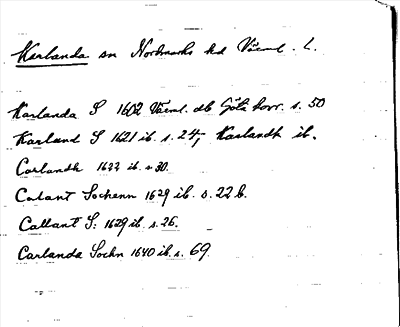 Karlanda sn Nordmarks hd Värml. L.
Karlanda S 1602 Värml. db Göta hovr. s. 50
Karland S 1621 ib. s. 24, Karlandh ib.
Carlandh 1622 ib. s 30.
Calant Sochenn 1629 ib. s. 22 b.
Callant S: 1629 ib. s. 26.
Carlanda Sochn 1640 ib. s. 69.